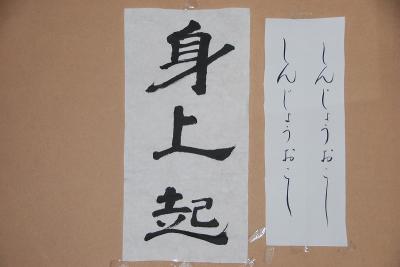 身上起
しんじょうおこし
しんじょうおこし